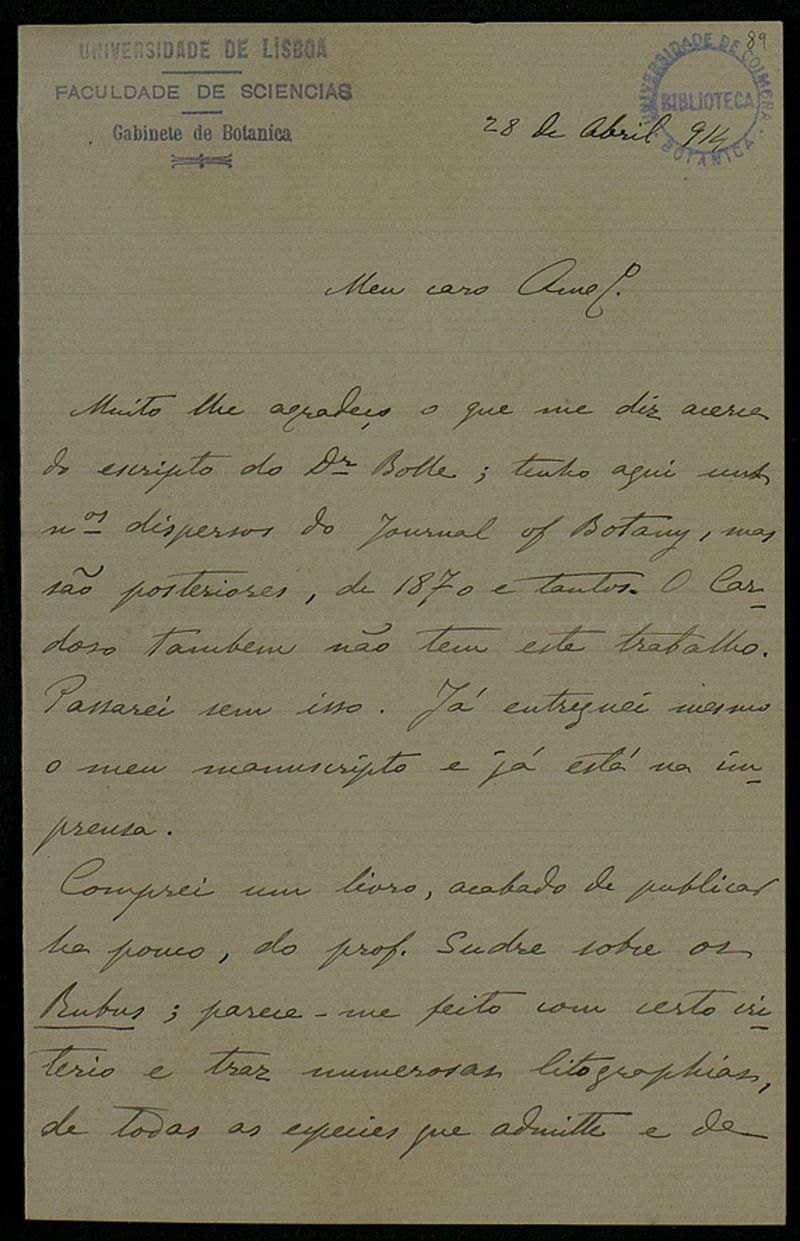 89
UNIVERSIDADE DE LISBOA
FACULDADE DE SCIENCIAS
Gabinete de Botanica
UNIVERSIDADE DE COIMBRA
BIBLIOTECA
BOTANICA
28 de Abril 914
Meu caro Amº.
Muito lhe agradeço o que me diz acerca
do escripto do Dr Bolle; tenho aqui uns
nos dispersos do Journal of Botany, mas
são posteriores, de 1870 e tantos. O Car-
doso tambem não tem este trabalho.
Passarei sem isso. Já entreguei mesmo
o meu manuscripto e já está na im-
prensa.
Comprei um livro, acabado de publicar
ha pouco, do prof. Sudre sobre os
Rubus; parece-me feito com certo cri-
terio e traz numerosas litographias,
de todas as especies que admitte e de